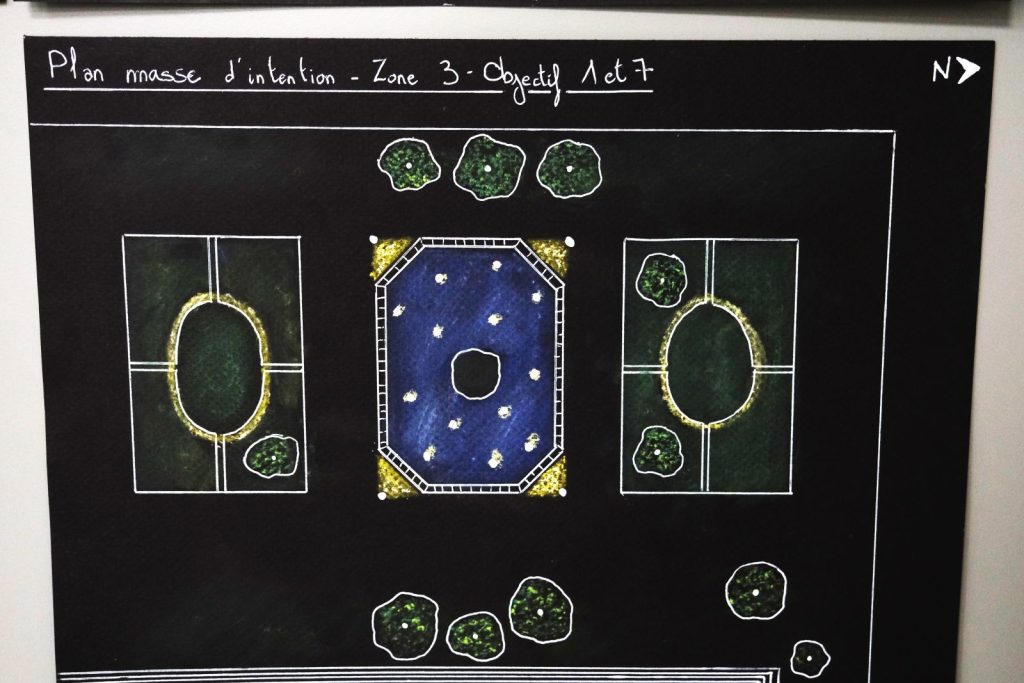 Plan masse d'intention - Zone 3 - Objectif 1 et 7
N